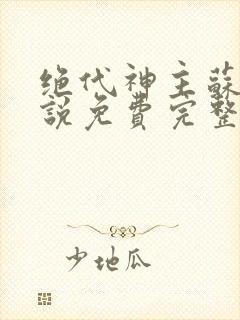 绝代神主蘇
說免費完整
少地瓜